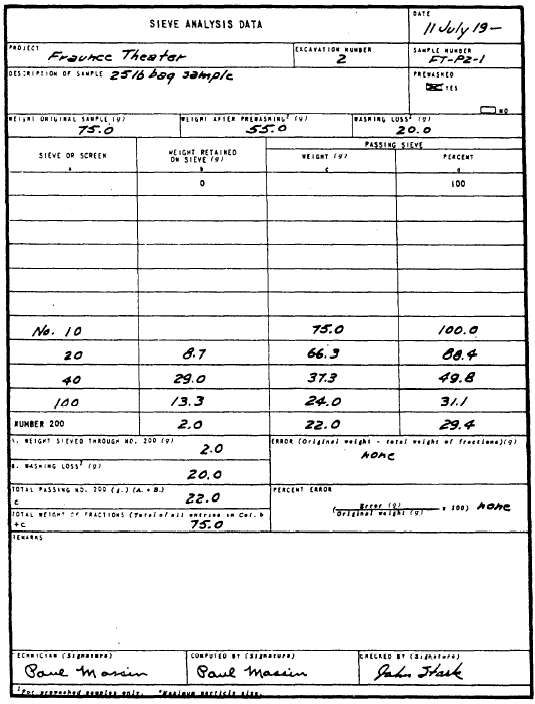 SIEVE ANALYSIS DATA
DATE
11 July 19—
PROJECT
Fraunce Theater
EXCAVATION NUMBER
2
SAMPLE NUMBER
FT-P2-1
DESCRIPTION OF SAMPLE 25lb bag sample
PREWASHED
YES
NO
WEIGHT ORIGINAL SAMPLE (g)
75.0
WEIGHT AFTER PREWASHING¹ (g)
55.0
WASHING LOSS¹ (g)
20.0
SIEVE OR SCREEN
a
WEIGHT RETAINED
ON SIEVE (g)
b
PASSING SIEVE
WEIGHT (g)
c
PERCENT
d
0 100
No. 10 75.0 100.0
20 8.7 66.3 88.4
40 29.0 37.3 49.8
100 13.3 24.0 31.1
NUMBER 200 2.0 22.0 29.4
A. WEIGHT SIEVED THROUGH NO. 200 (g)
2.0
B. WASHING LOSS¹ (g)
20.0
TOTAL PASSING NO. 200 (g.) (A + B.)
c 22.0
TOTAL WEIGHT OF FRACTIONS (Total of all entries in Col. b
+C 75.0
ERROR (Original weight - total weight of fractions)(g)
none
PERCENT ERROR
( Error (g)
Original weight (g) x 100) none
REMARKS
TECHNICIAN (Signature)
Paul Massin
COMPUTED BY (Signature)
Paul Massin
CHECKED BY (Signature)
John Stark
¹For prewashed samples only. *Maximum particle size.